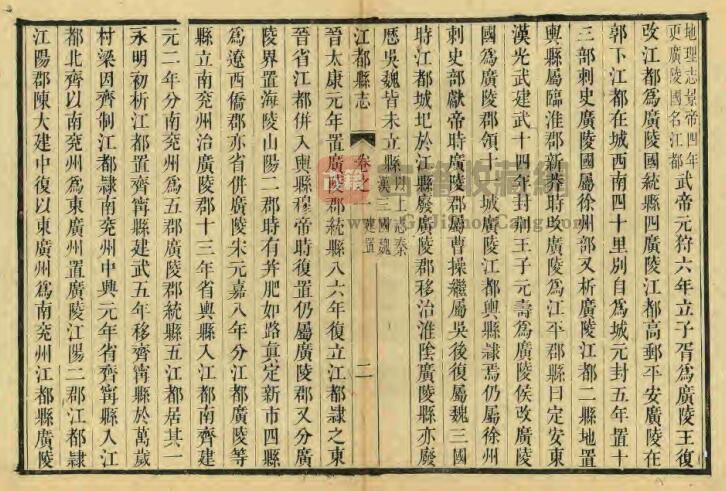 地理志景帝四年
更廣陵國名江都
武帝元狩六年立子胥爲廣陵王復
改江都爲廣陵國統縣四廣陵江都高郵平安廣陵在
郭下江都在城西南四十里別自爲城元封五年置十
三部刺史廣陵國屬徐州部又析廣陵江都二縣地置
輿縣屬臨淮郡新莽時改廣陵爲江平郡縣曰定安東
漢光武建武十四年封荆王子元壽爲廣陵侯改廣陵
國爲廣陵郡領十一城廣陵江都輿縣隸焉仍屬徐州
刺史部獻帝時廣陵郡屬曹操繼屬吳後復屬魏三國
時江都城圮於江縣廢廣陵郡移治淮陰廣陵縣亦廢
歷吳魏皆未立縣
以上志秦
漢三國魏
江都縣志 卷之一 建置 二
晉太康元年置廣陵郡統縣八六年復立江都隸之東
晉省江都併入輿縣穆帝時復置仍屬廣陵郡又分廣
陵界置海陵山陽二郡時有并肥如路真定新市四縣
爲遼西僑郡亦省併廣陵宋元嘉八年分江都廣陵等
縣立南兗州治廣陵郡十三年省輿縣入江都南齊建
元二年分南兗州爲五郡廣陵郡統縣五江都居其一
永明初析江都置齊甯縣建武五年移齊甯縣於萬歲
村梁因齊制江都隸南兗州中興元年省齊甯縣入江
都北齊以南兗州爲東廣州置廣陵江陽二郡江都隸
江陽郡陳大建中復以東廣州爲南兗州江都縣廣陵
收藏網
GuJiShouCang.com